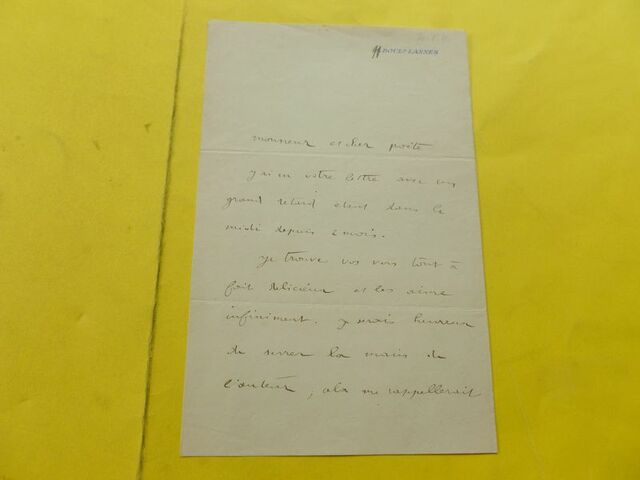 BOULD LANNES
monsieur et cher poète
j'ai eu votre lettre avec un
grand retard étant dans le
midi depuis 2 mois.
Je trouve vos vers tout à
fait délicieux et les aime
infiniment. Je serais heureux
de serrer la main de
l'auteur, cela me rappellerait